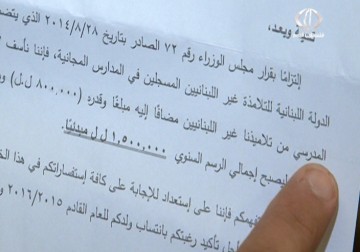 تحية وبعد،
إلتزامًا بقرار مجلس الوزراء رقم ٧٢ الصادر بتاريخ ٢٠١٤/٨/٢٨ الذي
الدولة اللبنانية للتلامذة غير اللبنانيين المسجلين في المدارس المجانية، فإننا نأسف
المدرسي من تلاميذنا غير اللبنانيين مضافًا إليه مبلغًا وقدره (٨٠٠,٠٠٠ ل.ل)
ليصبح إجمالي الرسم السنوي ١,٥٠٠,٠٠٠ ل.ل مبدئيًا.
فإننا على إستعداد للإجابة على كافة إستفساراتكم في هذا
تأكيد رغبتكم بانتساب ولدكم للعام القادم ٢٠١٥/٢٠١٦